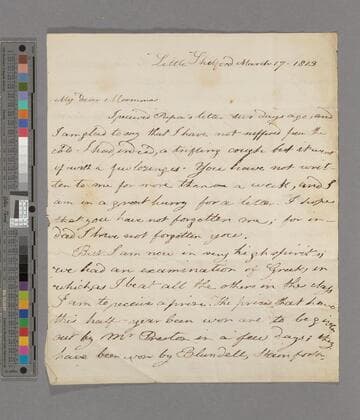 Little Shelford March 17 - 1813
My dear Mamma
I received Papa's letter two days ago, and
I am glad to say that I have not suffered from the
cold. I had indeed, a trifling cough but it went
off with a few lozenges. You have not writ-
ten to me for more than a week, and I
am in a great hurry for a letter. I hope
that you have not forgotten me; for in-
deed I have not forgotten you.
But I am now in very high spirits;
we had an examination of Greek, in
which I beat all the others in the class
I am to receive a prize. The prizes that have
this half-year been won are to be given
out by Mr Preston in a few days; they
have been won by Blundell, Hainforth